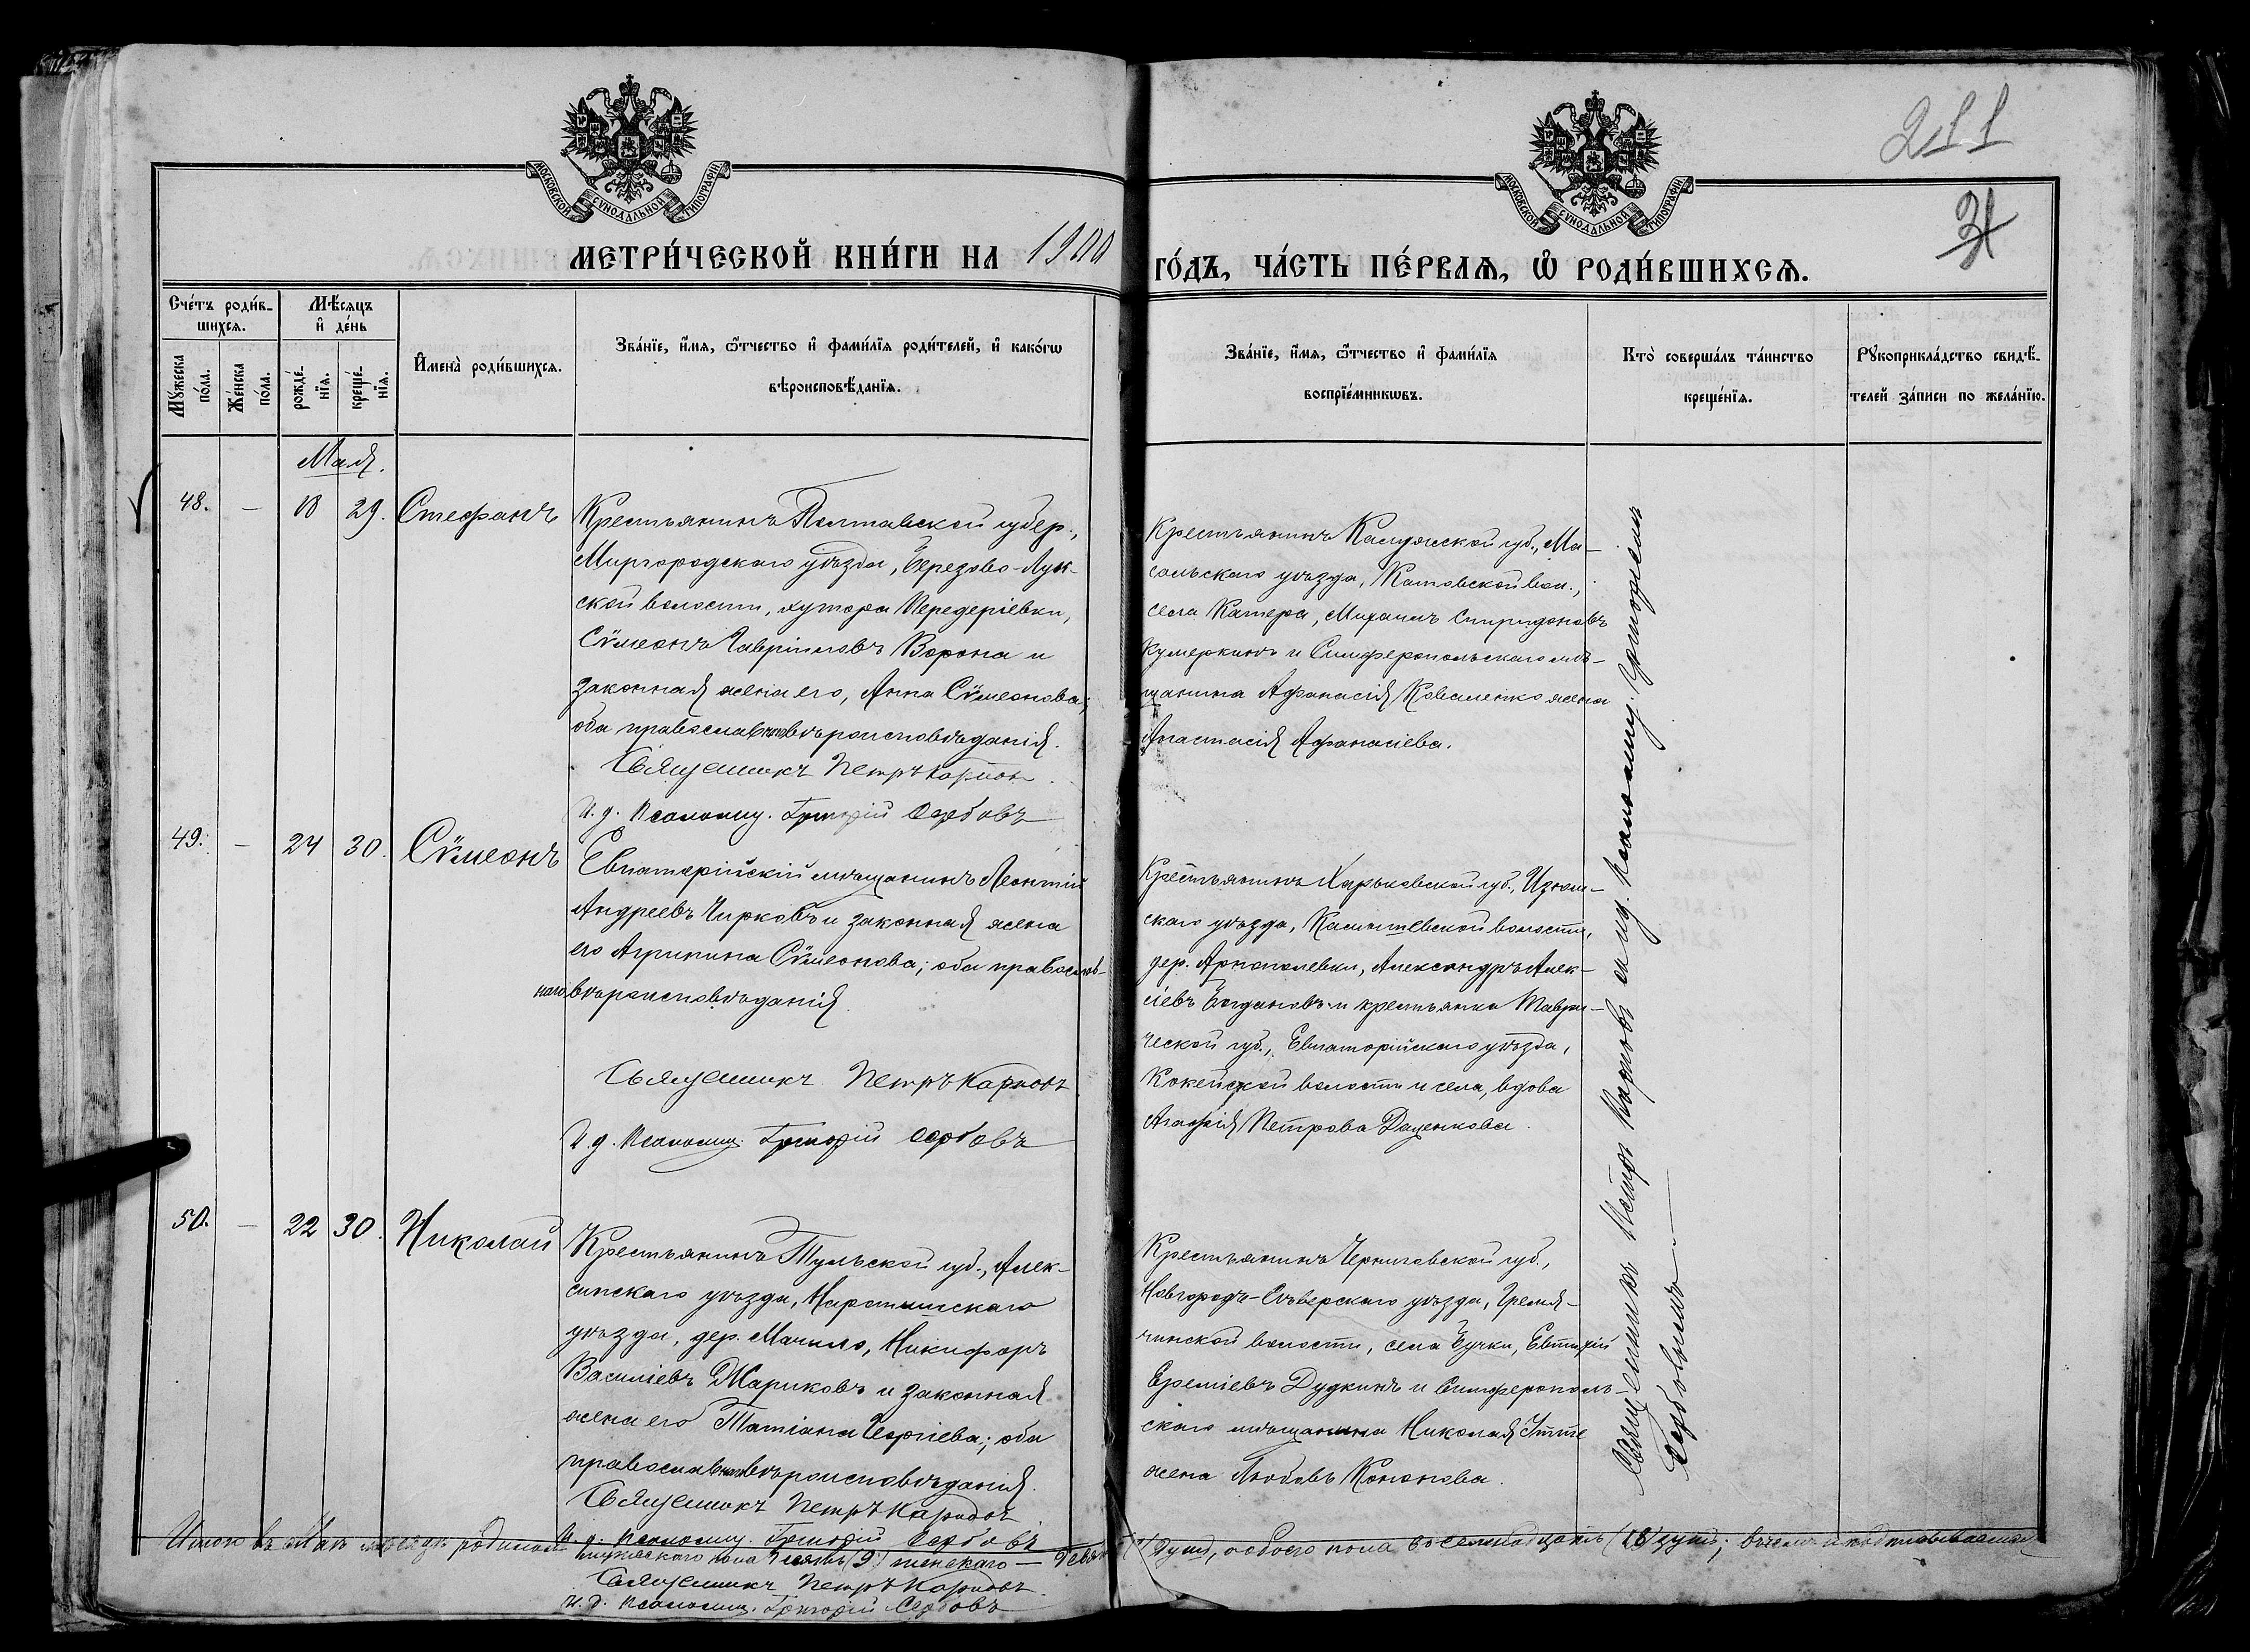 211
31
МОСКОВСКОЙ СѴНОДАЛЬНОЙ ТИПОГРАФІИ
МОСКОВСКОЙ СѴНОДАЛЬНОЙ ТИПОГРАФІИ
МЕТРИ́ЧЕСКОЙ КНИ́ГИ НА 1900
ГО́ДЪ, ЧА́СТЬ ПЕ́РВАѦ, Ѡ҆ РОДИ́ВШИХСѦ.
Сче́тъ роди́в-
шихсѧ.
Мꙋ́жеска
по́ла.
Же́нска
по́ла.
Мѣ́сѧцъ
и҆ де́нь
рожде́-
нїѧ.
креще́-
нїѧ.
И҆мена̀ роди́вшихсѧ.
Зва́нїе, и҆́мѧ, ѻ҆́тчество и҆ фами́лїѧ роди́телей, и҆ како́гѡ
вѣроисповѣ́данїѧ.
Зва́нїе, и҆́мѧ, ѻ҆́тчество и҆ фами́лїѧ
воспрїе́мникѡвъ.
Кто̀ соверша́лъ та́инство
креще́нїѧ.
Рꙋкоприкла́дство свидѣ́-
телей за́писи по жела́нїю.
Мая.
48. — 18 29. Стефанъ
Крестьянинъ Полтавской губер.,
Миргородскаго уѣзда, Березово-Лук-
ской волости, хутора Передеріевки,
Сѵмеонъ Гавріиловъ Ворона и
законная жена его, Анна Сѵмеонова;
оба православнаго вѣроисповѣданія.
Священникъ Петръ Карповъ
И. д. псаломщ. Григорій Сербовъ
Крестьянинъ Калужской губ., Ма-
сальскаго уѣзда, Котовской вол.,
села Михаилъ Спиридоновъ
и Симферопольскаго мѣ-
щанина Афанасія Коваленко жена
Анастасія Афанасіева.
49. — 24 30. Сѵмеонъ
Евпаторійскій мѣщанинъ Леонтій
Андреевъ Чирковъ и законная жена
его Агрипина Сѵмеонова; оба православ-
наго вѣроисповѣданія.
Священникъ Петръ Карповъ
И. д. псаломщ. Григорій Сербовъ
Крестьянинъ Харьковской губ., Изюм-
скаго уѣзда, волости,
дер. Александръ Алек-
сіевъ Богдановъ и крестьянка Таври-
ческой губ., Евпаторійскаго уѣзда,
волости и села, вдова
Агафія Петрова Даценкова.
50. — 22 30. Николай
Крестьянинъ Тульской губ., Алек-
синскаго уѣзда,
уѣзда, дер. Никифоръ
Василіевъ Жариковъ и законная
жена его Татіана Георгіева; оба
православнаго вѣроисповѣданія.
Священникъ Петръ Карповъ
И. д. псаломщ. Григорій Сербовъ
Крестьянинъ Черниговской губ.,
Новгородъ-Сѣверскаго уѣзда, Гремя-
чинской волости, села Бучки, Евтихій
Ереміевъ Дудкинъ и Симферополь-
скаго мѣщанина Николая
жена Любовь Кононова.
Священникъ Петръ Карповъ съ и. д. псаломщ. Григоріемъ
Сербовымъ
Итого въ Маѣ мѣсяцѣ родилось мужескаго пола девять (9) женскаго — девять (9) душъ, обоего пола восемнадцать (18) душъ; въ чемъ и подписываемся
Священникъ Петръ Карповъ
И. д. псаломщ. Григорій Сербовъ